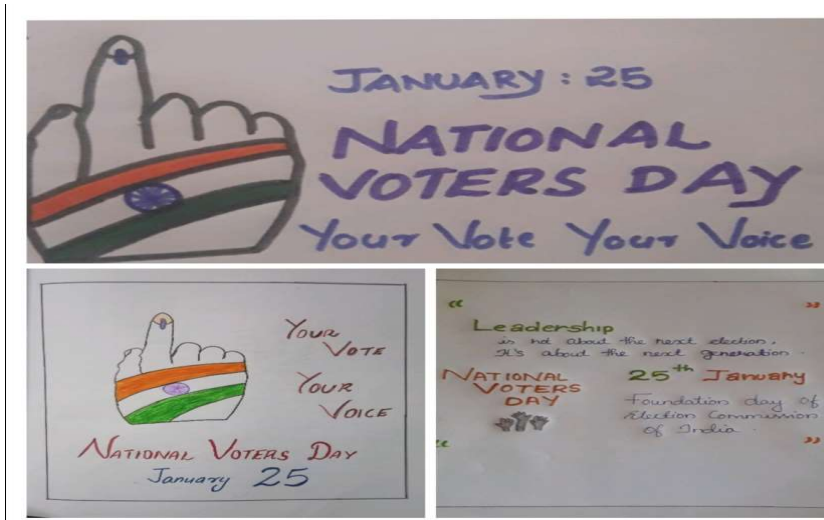 JANUARY : 25
NATIONAL
VOTERS DAY
Your Vote Your Voice
YOUR
VOTE
YOUR
VOICE
NATIONAL VOTERS DAY
January 25
“
”
Leadership
is not about the next election,
It's about the next generation.
NATIONAL
VOTERS
DAY
25th January
Foundation day of
Election Commission
of India.
“
”